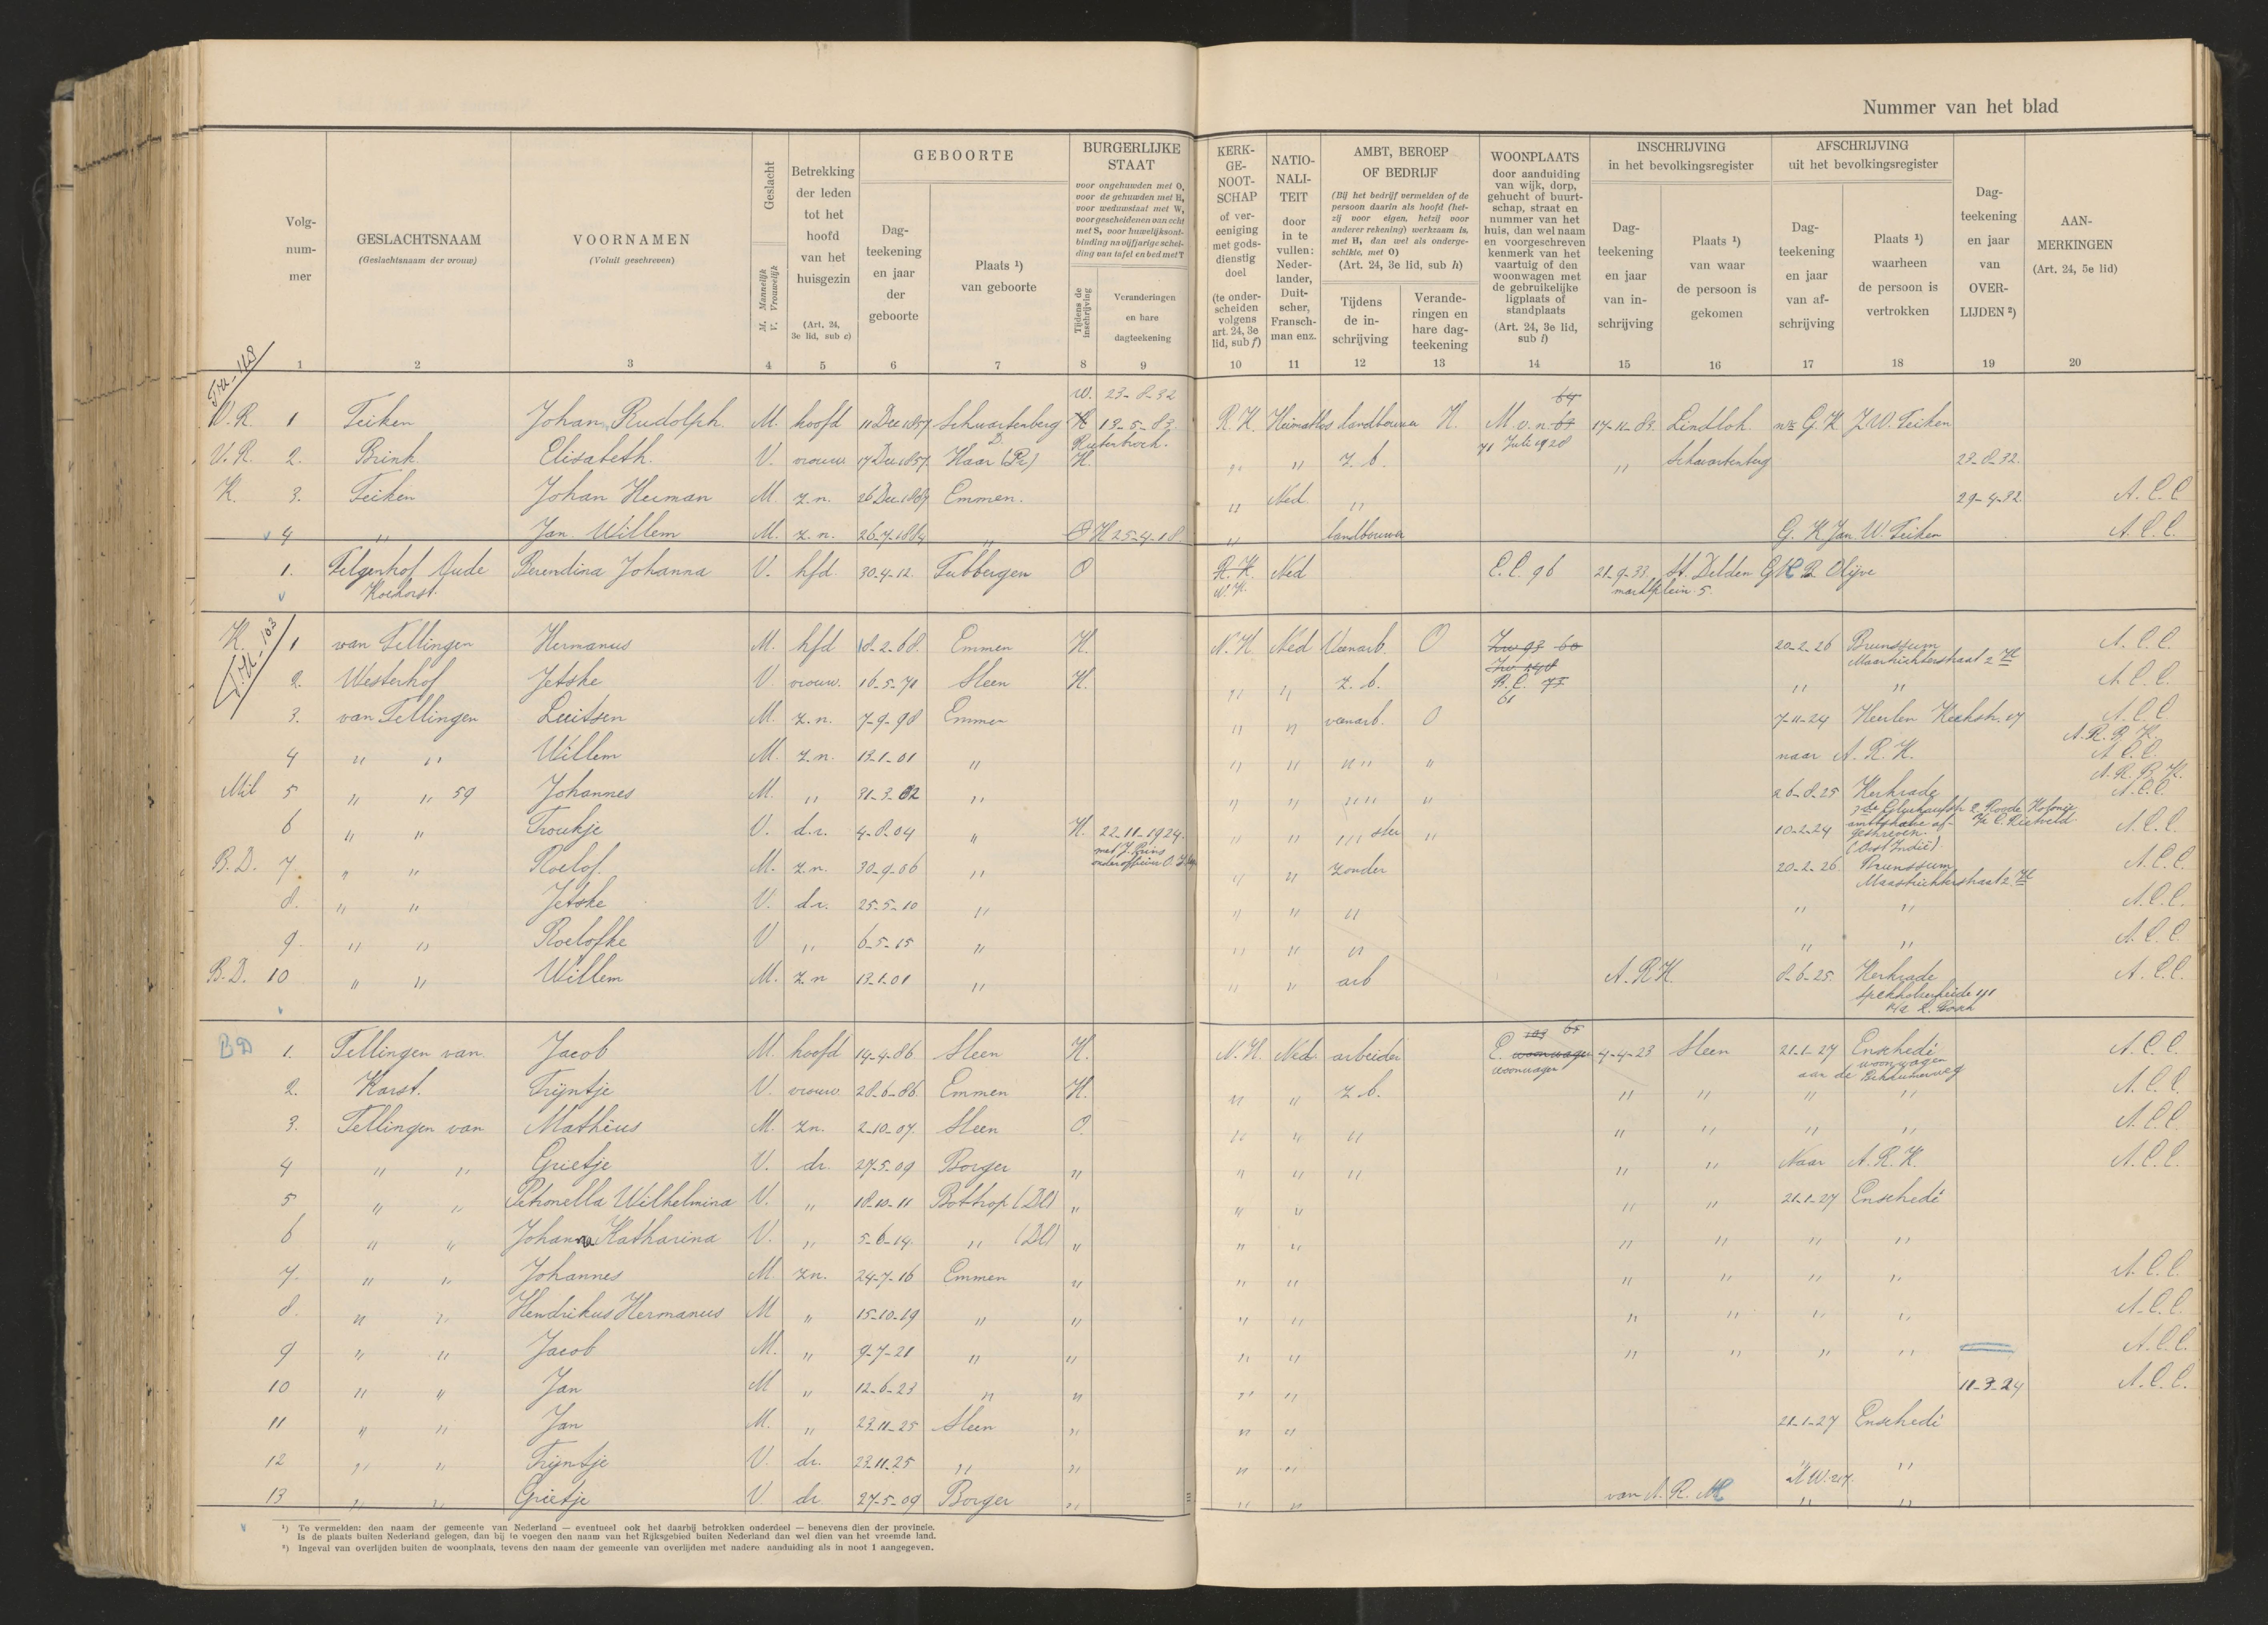 Nummer van het blad
Volg-
num-
mer
GESLACHTSNAAM
(Geslachtsnaam der vrouw)
VOORNAMEN
(Voluit geschreven)
Geslacht
M. Mannelijk
V. Vrouwelijk
Betrekking
der leden
tot het
hoofd
van het
huisgezin
(Art. 24,
3e lid, sub c)
GEBOORTE
Dag-
teekening
en jaar
der
geboorte
Plaats ¹)
van geboorte
BURGERLIJKE
STAAT
voor ongehuwden met O,
voor de gehuwden met H,
voor weduwstaat met W,
voor gescheidenen van echt
met S, voor huwelijksont-
binding na vijfjarige schei-
ding van tafel en bed met T
Tijdens de
inschrijving
Veranderingen
en hare
dagteekening
KERK-
GE-
NOOT-
SCHAP
of ver-
eeniging
met gods-
dienstig
doel
(te onder-
scheiden
volgens
art. 24, 3e
lid, sub f)
NATIO-
NALI-
TEIT
door
in te
vullen:
Neder-
lander,
Duit-
scher,
Fransch-
man enz.
AMBT, BEROEP
OF BEDRIJF
(Bij het bedrijf vermelden of de
persoon daarin als hoofd (het-
zij voor eigen, hetzij voor
anderer rekening) werkzaam is,
met H, dan wel als onderge-
schikte, met O)
(Art. 24, 3e lid, sub h)
Tijdens
de in-
schrijving
Verande-
ringen en
hare dag-
teekening
WOONPLAATS
door aanduiding
van wijk, dorp,
gehucht of buurt-
schap, straat en
nummer van het
huis, dan wel naam
en voorgeschreven
kenmerk van het
vaartuig of den
woonwagen met
de gebruikelijke
ligplaats of
standplaats
(Art. 24, 3e lid,
sub i)
INSCHRIJVING
in het bevolkingsregister
Dag-
teekening
en jaar
van in-
schrijving
Plaats ¹)
van waar
de persoon is
gekomen
AFSCHRIJVING
uit het bevolkingsregister
Dag-
teekening
en jaar
van af-
schrijving
Plaats ¹)
waarheen
de persoon is
vertrokken
Dag-
teekening
en jaar
van
OVER-
LIJDEN ²)
AAN-
MERKINGEN
(Art. 24, 5e lid)
1 2 3 4 5 6 7 8 9 10 11 12 13 14 15 16 17 18 19 20
W. 23-8-32 64
V.R. 1 Teiken Johan Rudolph. M. hoofd 11 Dec 1857 Schwartenberg H 13-5-83 R.K. Heimatlos landbouwer H. M.v.n. 61 17-11-83. Lindloh. G.K. J.W. Teiken
Rutenbrock. 71 Juli 1928
V.R. 2. Brink. Elisabeth. V. vrouw 17 Dec 1857. Haar (Pr) H. " " z.b. " Schwartenberg 23-8-32.
K. 3. Teiken Johan Herman M. z.n. 26 Dec. 1887 Emmen. " Ned. " 29-4-32 A.C.C.
4 " Jan Willem M. z.n. 26-7-1884 " O H 25-4-18 " landbouwer G.K. Jan W. Teiken A.C.C.
1. Telgenhof Oude Berendina Johanna V. hfd. 30-4-12. Tubbergen O R.K. Ned E.C. 96 21-9-33. St. Delden G.K. B Olijve
Koehorst. marktplein 5.
K. 1 van Tellingen Hermanus M. hfd 18-2-68. Emmen H. N.H. Ned Veenarb. O 20-2-26 Brunssum A.C.C.
Maastrichterstraat 2
2. Westerhof Jetske V. vrouw. 16-5-71 Sleen H. " " z.b. B.C. 75 " " A.C.C.
61
3. van Tellingen Luitsen M. z.n. 7-9-98 Emmen " " veenarb. O 7-11-24 Heerlen Kerkstr. 17 A.C.C.
A.R.B.K.
4 " " Willem M. z.n. 13-1-01 " " " " " " naar A.R.K. A.C.C.
A.R.B.K.
Mil 5 " " 59 Johannes M. " 31-3-02 " " " " " " 26-8-25 Kerkrade A.C.C.
6 " " Froukje V. d.r. 4-8-04 " H. 22-11-1924. " " " ster " 10-2-24 ambtshalve af- A.C.C.
met J. Prins geschreven.
(Oost Indië)
B.D. 7. " " Roelof. M. z.n. 30-9-06 " " " zonder 20-2-26. Brunssum A.C.C.
Maastrichterstraat 2
8. " " Jetske V. dr. 25-5-10 " " " " " " A.C.C.
9. " " Roelofke V " 6-5-15 " " " " " " A.C.C.
B.D. 10 " " Willem M. z.n 13-1-01 " " " arb A.R.K. 8-6-25. Kerkrade A.C.C.
103 65
BD 1. Tellingen van Jacob M. hoofd 14-4-86 Sleen H. N.H. Ned. arbeider E. woonwagen 4-4-23 Sleen 21-1-27 Enschedé A.C.C.
woonwagen woonwagen
aan de
2. Karst. Trijntje V. vrouw 28-6-86 Emmen H. " " z.b. " " " " A.C.C.
3. Tellingen van Mathëus M. zn. 2-10-07. Sleen O. " " " " " " " A.C.C.
4 " " Grietje V. dr. 27-5-09 Borger " " " " " " Naar A.R.K. A.C.C.
5 " " Petronella Wilhelmina V. " 18-10-11 Bottrop (Dl) " " " " " 21-1-27 Enschedé
6 " " Johanna Katharina V. " 5-6-14. " (Dl) " " " " " " "
7. " " Johannes M zn. 24-7-16 Emmen " " " " " " " A.C.C.
8. " " Hendrikus Hermanus M " 15-10-19 " " " " " " " " A.C.C.
9 " " Jacob M. " 9-7-21 " " " " " " " " A.C.C.
10 " " Jan M " 12-6-23 " " " " 11-3-24 A.C.C.
11 " " Jan M. " 23-11-25 Sleen " " " 21-1-27 Enschedé
12 " " Trijntje V. dr. 23-11-25 " " " " "
13 " " Grietje V. dr 27-5-09 Borger " " " van A.R.K. " "
¹) Te vermelden: den naam der gemeente van Nederland — eventueel ook het daarbij betrokken onderdeel — benevens dien der provincie.
Is de plaats buiten Nederland gelegen, dan bij te voegen den naam van het Rijksgebied buiten Nederland dan wel dien van het vreemde land.
²) Ingeval van overlijden buiten de woonplaats, tevens den naam der gemeente van overlijden met nadere aanduiding als in noot 1 aangegeven.